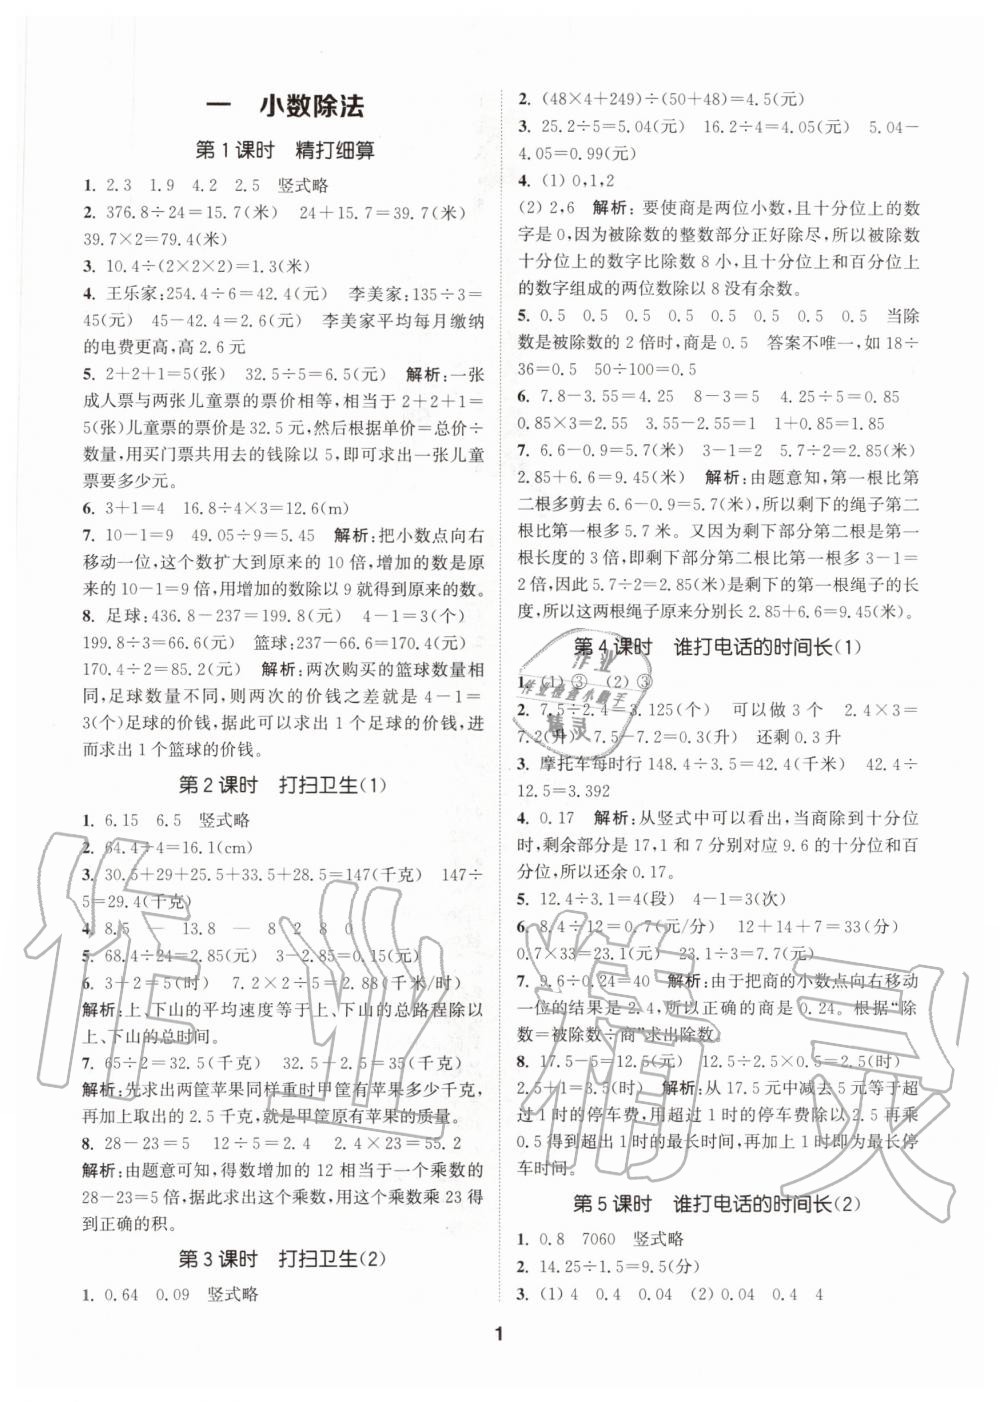 一 小数除法
第1课时 精打细算
1. 2.3 1.9 4.2 2.5 竖式略
2. 376.8÷24=15.7(米) 24+15.7=39.7(米)
39.7×2=79.4(米)
3. 10.4÷(2×2×2)=1.3(米)
4. 王乐家:254.4÷6=42.4(元) 李美家:135÷3=
45(元) 45-42.4=2.6(元) 李美家平均每月缴纳
的电费更高,高2.6元
5. 2+2+1=5(张) 32.5÷5=6.5(元) 解析:一张
成人票与两张儿童票的票价相等,相当于2+2+1=
5(张)儿童票的票价是32.5元,然后根据单价=总价÷
数量,用买门票共用去的钱除以5,即可求出一张儿童
票要多少元。
6. 3+1=4 16.8÷4×3=12.6(m)
7. 10-1=9 49.05÷9=5.45 解析:把小数点向右
移动一位,这个数扩大到原来的10倍,增加的数是原
来的10-1=9倍,用增加的数除以9就得到原来的数。
8. 足球:436.8-237=199.8(元) 4-1=3(个)
199.8÷3=66.6(元) 篮球:237-66.6=170.4(元)
170.4÷2=85.2(元) 解析:两次购买的篮球数量相
同,足球数量不同,则两次的价钱之差就是4-1=
3(个)足球的价钱,据此可以求出1个足球的价钱,进
而求出1个篮球的价钱。
第2课时 打扫卫生(1)
1. 6.15 6.5 竖式略
2. 64.4÷4=16.1(cm)
3. 30.5+29+25.5+33.5+28.5=147(千克) 147÷
5=29.4(千克)
4. 8.5 — 13.8 — 8 2 8 0
5. 68.4÷24=2.85(元) 3-2.85=0.15(元)
6. 3+2=5(时) 7.2×2÷5=2.88(千米/时)
解析:上、下山的平均速度等于上、下山的总路程除以
上、下山的总时间。
7. 65÷2=32.5(千克) 32.5+2.5=35(千克)
解析:先求出两筐苹果同样重时甲筐有苹果多少千克,
再加上取出的2.5千克,就是甲筐原有苹果的质量。
8. 28-23=5 12÷5=2.4 2.4×23=55.2
解析:由题意可知,得数增加的12相当于一个乘数的
28-23=5倍,据此求出这个乘数,用这个乘数乘23得
到正确的积。
第3课时 打扫卫生(2)
1. 0.64 0.09 竖式略
2. (48×4+249)÷(50+48)=4.5(元)
3. 25.2÷5=5.04(元) 16.2÷4=4.05(元) 5.04-
4.05=0.99(元)
4. (1) 0,1,2
(2) 2,6 解析:要使商是两位小数,且十分位上的数
字是0,因为被除数的整数部分正好除尽,所以被除数
十分位上的数字比除数8小,且十分位上和百分位上
的数字组成的两位数除以8没有余数。
5. 0.5 0.5 0.5 0.5 0.5 0.5 0.5 当除
数是被除数的2倍时,商是0.5 答案不唯一,如18÷
36=0.5 50÷100=0.5
6. 7.8-3.55=4.25 8-3=5 4.25÷5=0.85
0.85×3=2.55 3.55-2.55=1 1+0.85=1.85
7. 6.6-0.9=5.7(米) 3-1=2 5.7÷2=2.85(米)
2.85+6.6=9.45(米) 解析:由题意知,第一根比第
二根多剪去6.6-0.9=5.7(米),所以剩下的绳子第二
根比第一根多5.7米。又因为剩下部分第二根是第一
根长度的3倍,即剩下部分第二根比第一根多3-1=
2倍,因此5.7÷2=2.85(米)是剩下的第一根绳子的长
度,所以这两根绳子原来分别长2.85+6.6=9.45(米)。
第4课时 谁打电话的时间长(1)
1. (1) ③ (2) ③
2. 7.5÷2.4=3.125(个) 可以做3个 2.4×3=
7.2(升) 7.5-7.2=0.3(升) 还剩0.3升
3. 摩托车每时行148.4÷3.5=42.4(千米) 42.4÷
12.5=3.392
4. 0.17 解析:从竖式中可以看出,当商除到十分位
时,剩余部分是17,1和7分别对应9.6的十分位和百
分位,所以还余0.17。
5. 12.4÷3.1=4(段) 4-1=3(次)
6. 8.4÷12=0.7(元/分) 12+14+7=33(分)
0.7×33=23.1(元) 23.1÷3=7.7(元)
7. 9.6÷0.24=40 解析:由于把商的小数点向右移动
一位的结果是2.4,所以正确的商是0.24。根据“除
数=被除数÷商”求出除数。
8. 17.5-5=12.5(元) 12.5÷2.5×0.5=2.5(时)
2.5+1=3.5(时) 解析:从17.5元中减去5元等于超
过1时的停车费,用超过1时的停车费除以2.5再乘
0.5得到超出1时的最长时间,再加上1时即为最长停
车时间。
第5课时 谁打电话的时间长(2)
1. 0.8 7060 竖式略
2. 14.25÷1.5=9.5(分)
3. (1) 4 0.4 0.04 (2) 0.04 0.4 4
1
作业
作业检查小助手
精灵
作业精灵